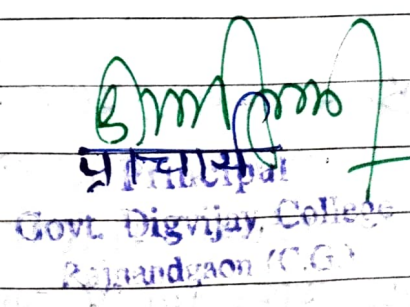 प्राचार्य
Principal
Govt. Digvijay, College
Rajnandgaon (C.G.)